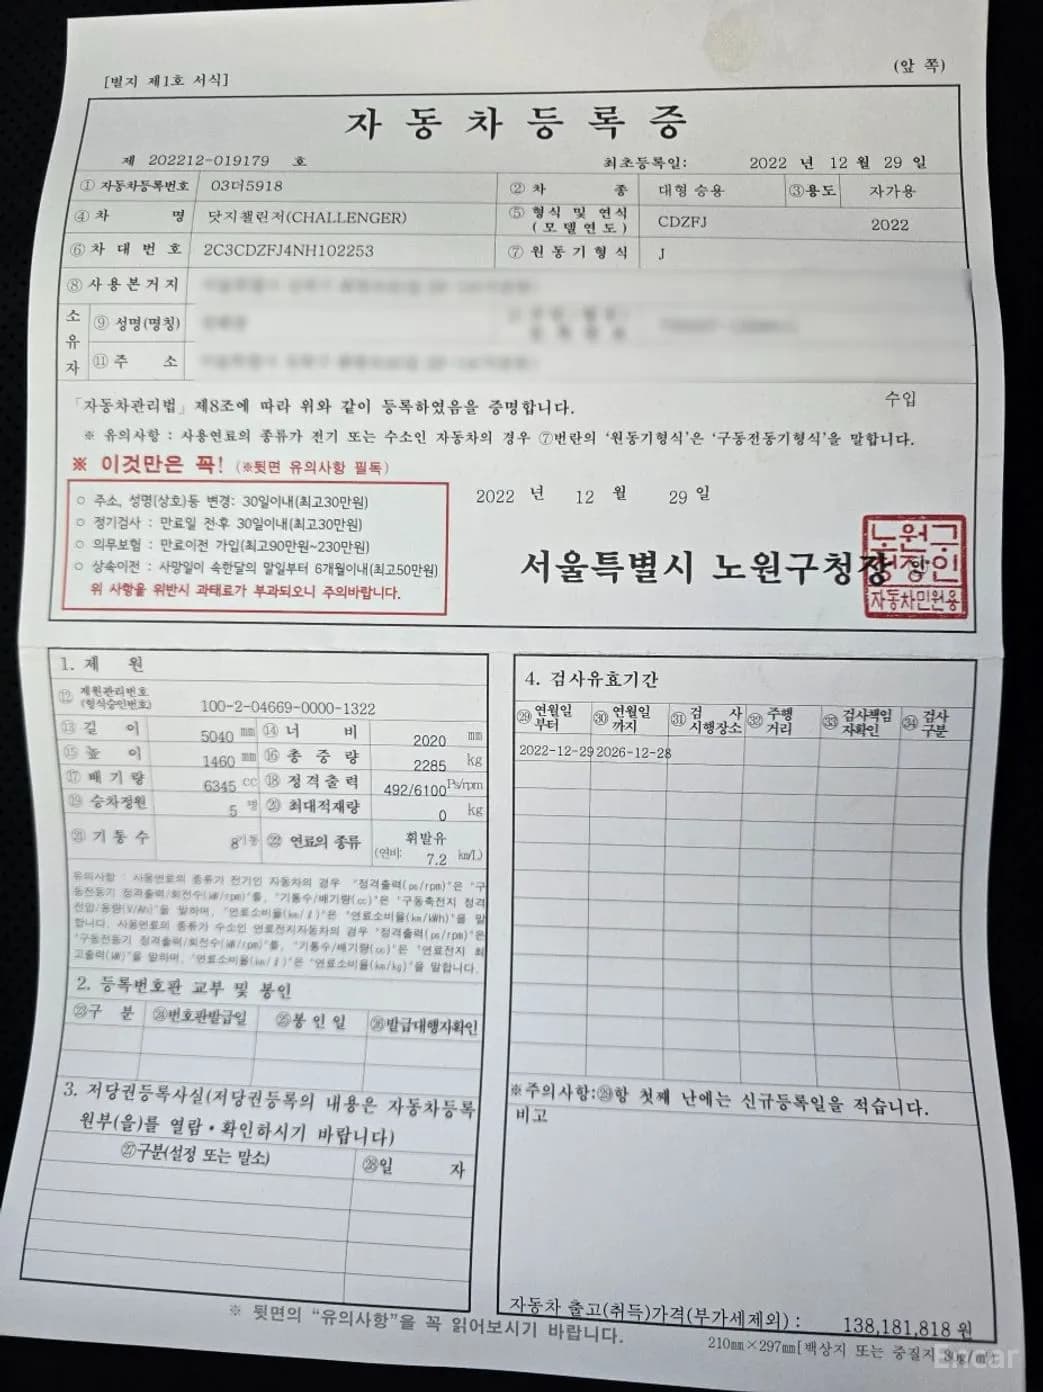 [별지 제1호 서식]
(앞 쪽)
자 동 차 등 록 증
제 202212-019179 호
최초등록일: 2022 년 12 월 29 일
① 자동차등록번호 03더5918 ② 차 종 대형 승용 ③용도 자가용
④ 차 명 닷지챌린저(CHALLENGER) ⑤ 형식 및 연식 (모델연도) CDZFJ 2022
⑥ 차 대 번 호 2C3CDZFJ4NH102253 ⑦ 원동기형식 J
⑧ 사용본거지
소유자
⑨ 성명(명칭)
⑪ 주 소
「자동차관리법」 제8조에 따라 위와 같이 등록하였음을 증명합니다.
수입
※ 유의사항 : 사용연료의 종류가 전기 또는 수소인 자동차의 경우 ⑦번란의 '원동기형식'은 '구동전동기형식'을 말합니다.
※ 이것만은 꼭! (※뒷면 유의사항 필독)
○ 주소, 성명(상호)등 변경: 30일이내(최고30만원)
○ 정기검사 : 만료일 전·후 30일이내(최고30만원)
○ 의무보험 : 만료이전 가입(최고90만원~230만원)
○ 상속이전 : 사망일이 속한달의 말일부터 6개월이내(최고50만원)
위 사항을 위반시 과태료가 부과되오니 주의바랍니다.
2022 년 12 월 29 일
서울특별시 노원구청장 인
노원구
청장인
자동차민원용
1. 제 원
⑫ 제원관리번호 (형식승인번호) 100-2-04669-0000-1322
⑬ 길 이 5040 mm ⑭ 너 비 2020 mm
⑮ 높 이 1460 mm ⑯ 총 중 량 2285 kg
⑰ 배 기 량 6345 cc ⑱ 정격출력 492/6100 Ps/rpm
⑲ 승차정원 5 명 ⑳ 최대적재량 0 kg
㉑ 기 통 수 8기통 ㉒ 연료의 종류 휘발유
(연비: 7.2 km/L)
유의사항 : 사용연료의 종류가 전기인 자동차의 경우 "정격출력(ps/rpm)"은 "구
동전동기 정격출력/회전수(kW/rpm)"를, "기통수/배기량(cc)"은 "구동축전지 정격
전압/용량(V/Ah)"을 말하며, "연료소비율(km/ℓ)"은 "연료소비율(km/kWh)"을 말
합니다. 사용연료의 종류가 수소인 연료전지자동차의 경우 "정격출력(ps/rpm)"은
"구동전동기 정격출력/회전수(kW/rpm)"를, "기통수/배기량(cc)"은 "연료전지 최
고출력(kW)"을 말하며, "연료소비율(km/ℓ)"은 "연료소비율(km/kg)"을 말합니다.
2. 등록번호판 교부 및 봉인
㉓구 분 ㉔번호판발급일 ㉕봉 인 일 ㉖발급대행자확인
3. 저당권등록사실(저당권등록의 내용은 자동차등록
원부(을)를 열람·확인하시기 바랍니다)
㉗구분(설정 또는 말소) ㉘일 자
4. 검사유효기간
㉙ 연월일 부터 ㉚ 연월일 까지 ㉛ 검 사 시행장소 ㉜ 주행 거리 ㉝ 검사책임 자확인 ㉞ 검사 구분
2022-12-29 2026-12-28
※주의사항:㉙항 첫째 난에는 신규등록일을 적습니다.
비고
자동차 출고(취득)가격(부가세제외) : 138,181,818 원
※ 뒷면의 "유의사항"을 꼭 읽어보시기 바랍니다.
210㎜×297㎜[백상지 또는 중질지 80g/㎡]
Encar